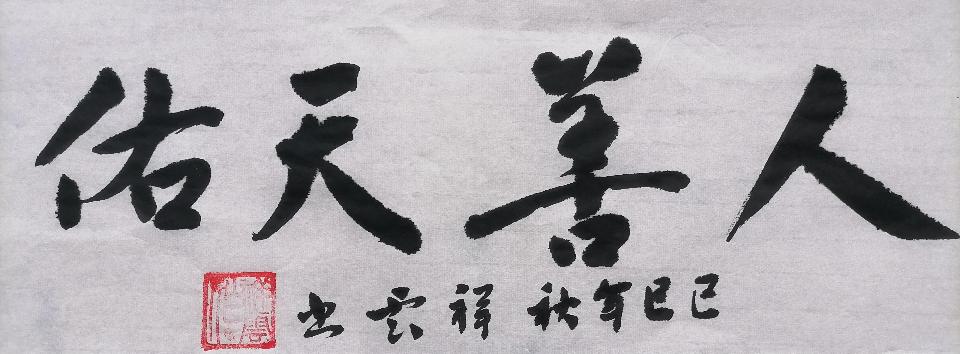 人善天佑
己巳年秋祥雲书